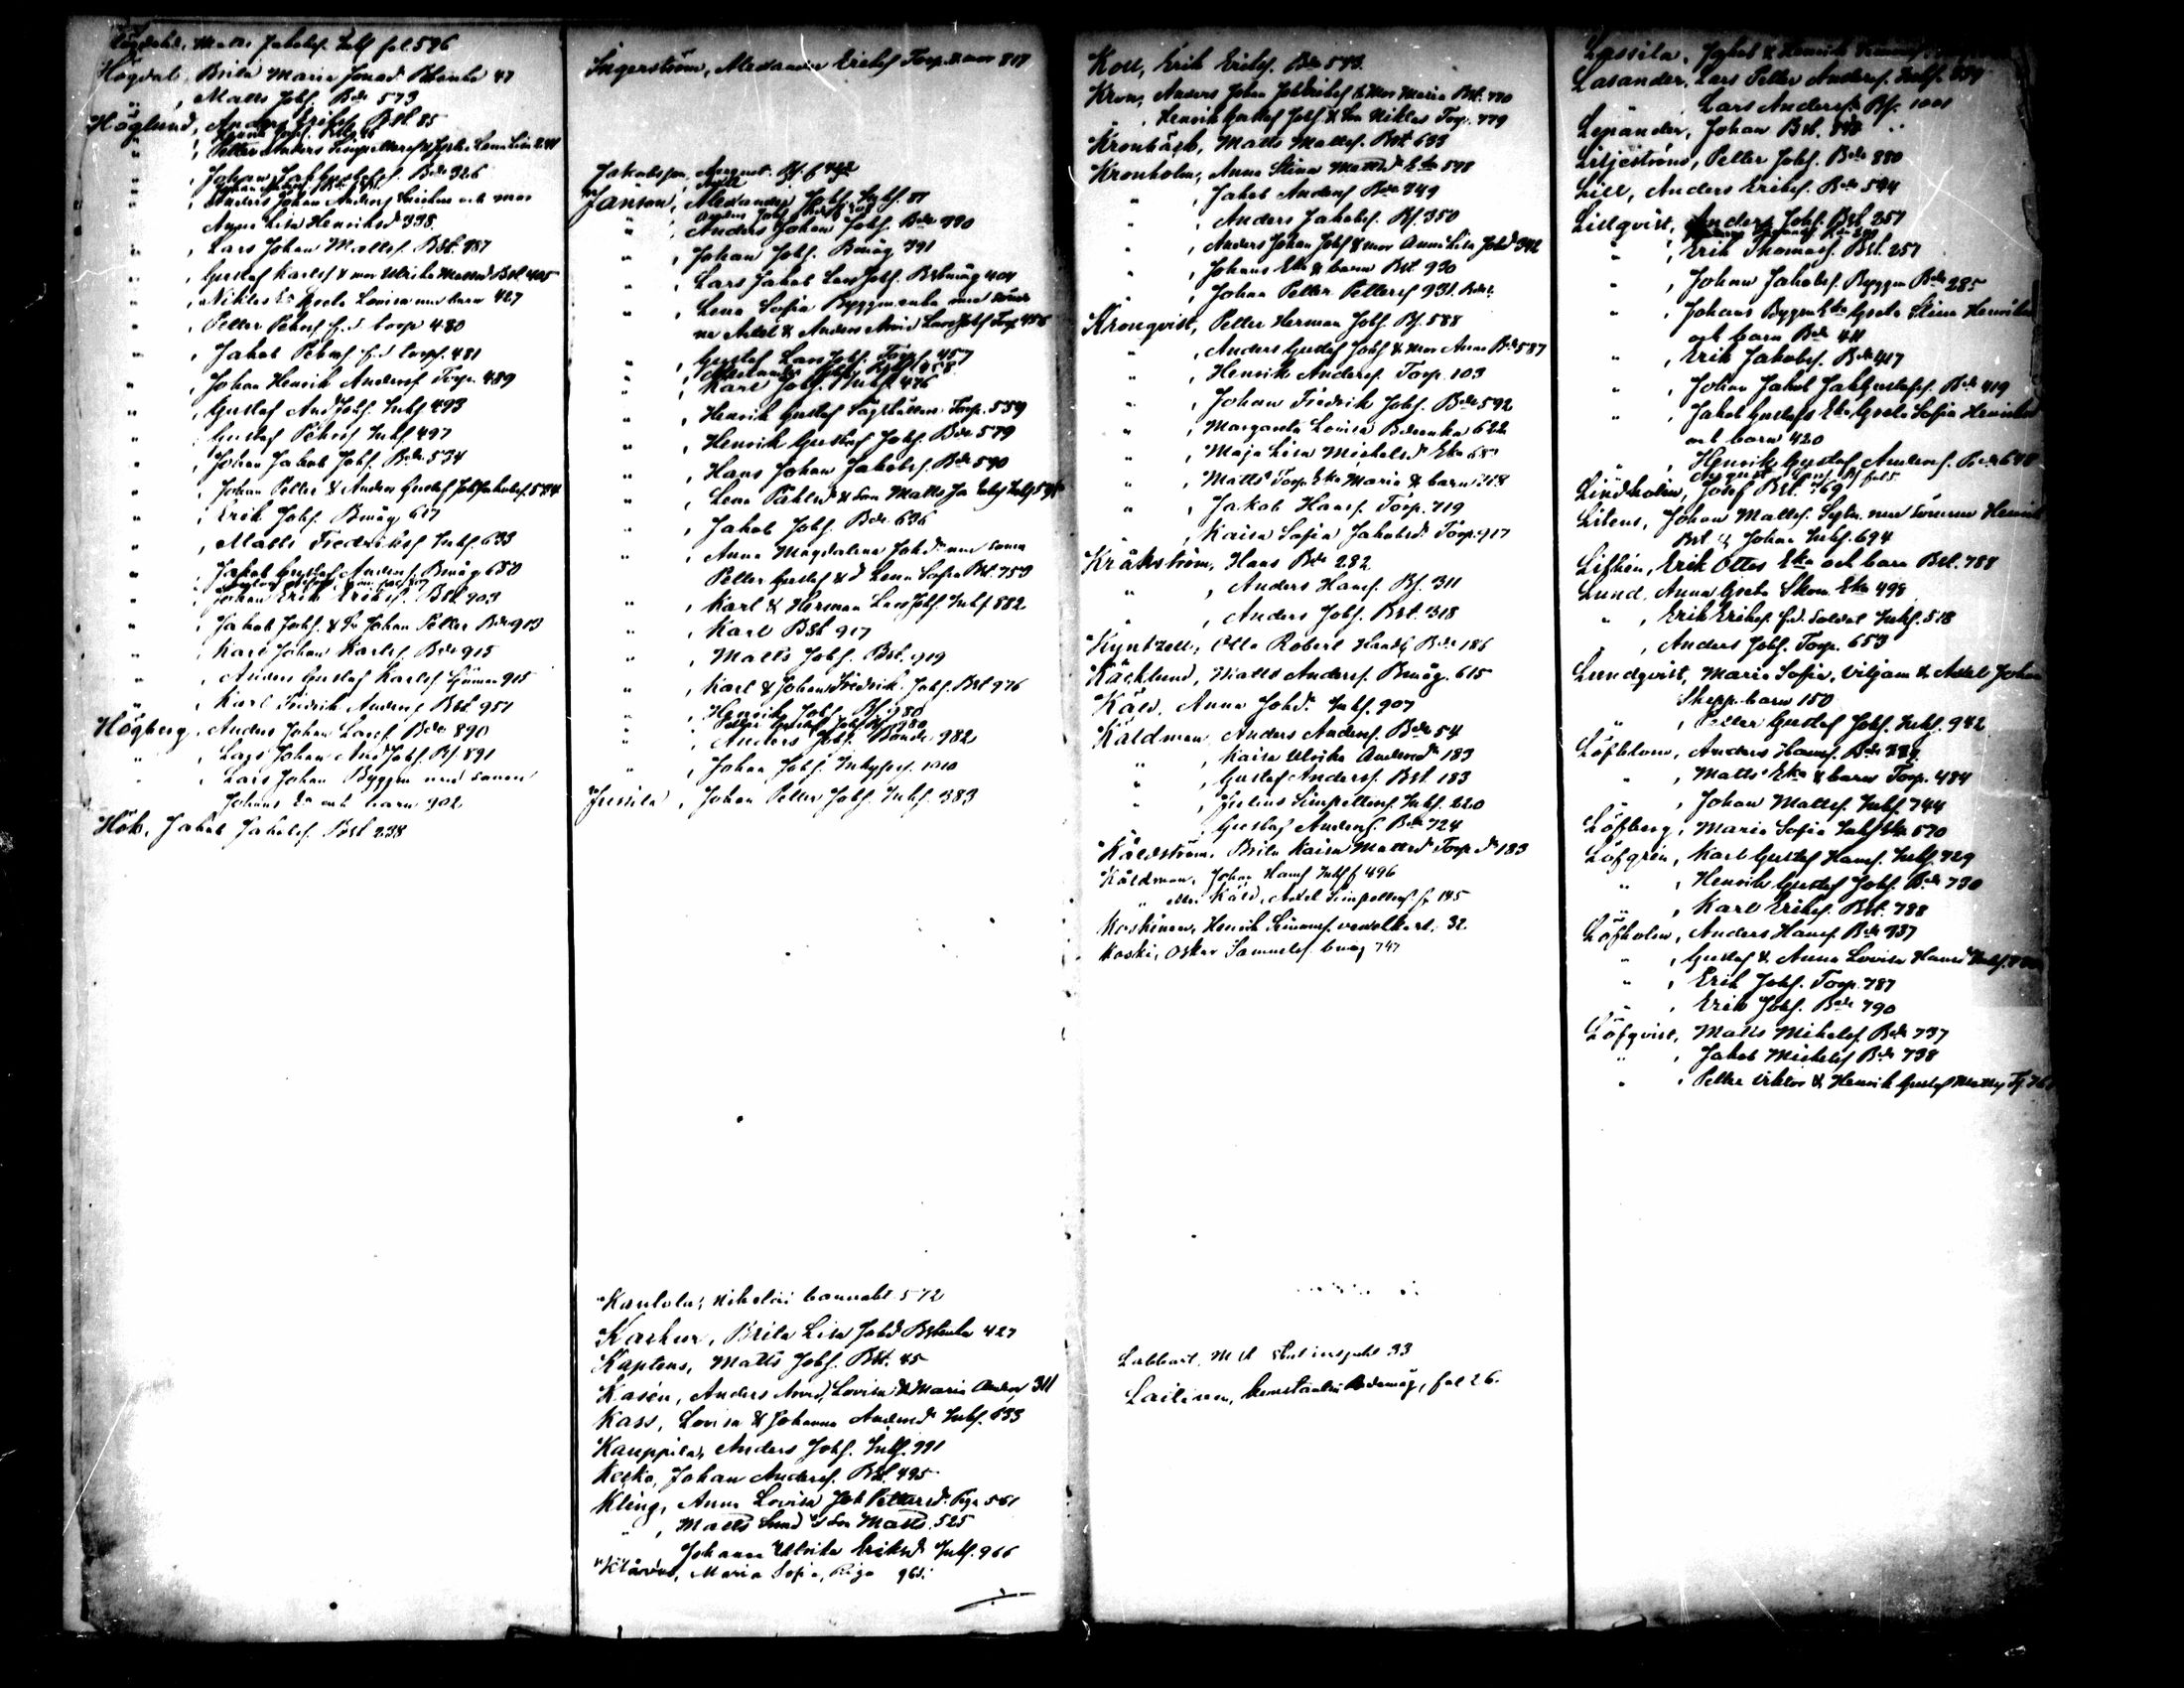 Högdahl, Matts Jakobsf. Inhf fol 596
Högdahl, Brita Maria Jonasd. Bstenka 47
" , Matts Johsf. Bde 573
Höglund, Anders Eriksf. Bst. 85
" , Petter Anders Simpettersf & Greta Lena Lisa 241
" , Johan Jak Gustafsf. Bde 326
" , Anders Johan Andersf och mor
Anna Lisa Henriksd. 338.
" , Lars Johan Mattsf. Bst. 387
" , Gustaf Karlsf & mor Ulrika Mattsd Bst 405
" , Niklas Greta Lovisa med barn 427
" , Petter torp 480
" , Jakob f.d. torpf. 481
" , Johan Henrik Andersf Torp. 489
" , Gustaf AndJohsf. Inhf 493
" , Gustaf Inhf 497
" , Johan Jakob Johsf. Bde 534
" , Johan Petter & Anders Gustaf JohJakobsf. 574
" , Erik Johsf. Bmåg 617
" , Matts Fredriksf Inhf. 633
" , Jakob Gustaf Andersf. Bmåg 650
" , Johan Erik Eriksf. Bst. 903
" , Jakob Johsf. & Johan Petter Bde 913
" , Karl Johan Karlsf. Bde 915
" , Anders Gustaf Karlsf 915
" , Karl Fredrik Andersf Bst 951
Högberg, Anders Johan Larsf. Bde 890
" , Lars Johan AndJohsf. Bf. 891
" , Lars Johan Byggm med sonen
Johans och barn 902
Hök, Jakob Jakobsf. Bst 238
Ingerström, Alexander Eriksf Torp. & mor 817
Jakobsson, August. Bf. f 422
Janson, Alexander Johsf. Inhf. 57
" , Anders Johan Johsf. Bde 390
" , Johan Johsf. Bmåg 391
" , Lars Jakob LarsJohsf. Bstmåg 404
" , Lena Sofia Byggm.enka med söner
na Axel & Anders Arvid LarsJohsf Torp. 456
" , Gustaf LarsJohsf. Torp. 457
" , Karl Johsf. Inhf. 476
" , Henrik Gustaf Torp. 559
" , Henrik Gustaf Johsf. Bde 579
" , Hans Johan Jakobsf. Bde 590
" , Lena & Son Matts
" , Jakob Johsf. Bde 636
" , Anna Magdalena Johd. med sonen
Petter Gustaf & d Lena Sofia Bst. 753
" , Karl & Herman LarsJohsf. Inhf 882
" , Karl Bst 917
" , Matts Johsf. Bst. 919
" , Karl & Johan Fredrik Johsf. Bst 976
" , Henrik Johsf. Bf. 980
" , Petter Gustaf Johsf 980
" , Anders Johsf. Bonde 982
" , Johan Johsf. Inhyhsf. 1010
Jussila, Johan Petter Johsf. Inhf. 383
Kantola, Nikolai 572
Karhu, Brita Lisa Johd Bstenka 427
Kaptens, Matts Johsf. Bst. 45
Kasén, Anders Arvid, Lovisa & Maria Andersf 311
Kass, Lovisa & Johanna Andersd. Inhf. 633
Kauppila, Anders Johsf. Inhf. 991
Keski, Johan Andersf. Bst. 495
Kling, Anna Lovisa Joh Pettersd. Piga 561
" , Matts Sund & Son Matts. 525
Johanna Ulrika Eriksd. Inhf. 966
Klåvus, Maria Sofia, Piga 965.
Koll, Erik Eriksf. Bde 543.
Kron, Anders Johan & Mor Maria Bst. 770
" , Henrik Gustaf Johsf. & Son Niklas Torp. 779
Kronbäck, Matts Mattsf. Bst 633
Kronholm, Anna Stina Mattsd Eka 578
" , Jakob Andersf Bde 349
" , Anders Jakobsf. Bf. 350
" , Anders Johan Johsf & mor Anna Lisa Johd 392
" , Johans Eka & barn Bst. 930
" , Johan Petter Pettersf 931. Bde
Kronqvist, Petter Herman Johsf. Bf. 588
" , Anders Gustaf Johsf & Mor Anna Bde 587
" , Henrik Andersf. Torp. 103
" , Johan Fredrik Johsf. Bde 592
" , Margareta Lovisa Bdeenka 622
" , Maja Lisa Michelsd. Eka
" , Matts Torp. Eka Maria & barn 718
" , Jakob Hansf. Torp. 719
" , Kaisa Sofia Jakobsd. Torp. 917
Kråkström, Hans Bde 282
" , Anders Hansf. Bf. 311
" , Anders Johsf. Bst. 318
Kyntzell, Otto Robert Handl. Bde 186
Käcklund, Matts Andersf. Bmåg. 615
Käld, Anna Johd. Inhf. 907
Käldman, Anders Andersf. Bde 54
" , Kaisa Ulrika Andersd. 183
" , Gustaf Andersf. Bst. 183
" , Julius Simpettersf. Inhf. 220
" , Gustaf Andersf. Bde 724
Käldström, Brita Kaisa Mattsd Torp. 183
Käldman, Johan Hansf Inhf f 496
" eller Käld, Axel Simpettersf. f. 145
Koskinen, Henrik Simonsf. 32
Koski, Oskar Samuelsf. bmåg 747
Labbart, M. A. 33
Laitinen, Konstantin Bdemåg, fol 26.
Lassila, Jakob & Henrik
Lasander, Lars Petter Andersf. Inhf.
" Lars Andersf. Bf. 1001
Lepander, Johan Bst.
Liljeström, Petter Johsf. Bde 880
Lill, Anders Eriksf. Bde 594
Lillqvist, Anders Johsf. Bst. 257
" , Erik Thomasf. Bst. 257
" , Johan Jakobsf. Byggm Bde 285
" , Johans Byggm Eka Greta Stina Henriksd
och barn Bde 411
" , Erik Jakobsf. Bde 417
" , Johan Jakob JakGustafsf. Bde 419
" , Jakob Gustafs Eka Greta Sofia Henriksd
och barn 420
" , Henrik Gustaf Andersf. Bde 648
Lindholm, Josef Bst. 769
Litens, Johan Mattsf. Sytn. med sönerna Henrik
Bst & Johan Inhf. 694
Lifhén, Erik Ottos Eka och barn Bst. 788
Lund, Anna Greta Skom. Eka 498
" , Erik Eriksf. f.d. Soldat Inhf. 518
" , Anders Johsf. Torp. 653
Lundqvist, Maria Sofia, Viljam & Axel Johan
Skepp. barn 150
" , Petter Gustaf Johsf. Inhf. 942
Löfblom, Anders Hansf. Bde
" , Matts Eka & barn Torp. 484
" , Johan Mattsf. Inhf. 744
Löfberg, Maria Sofia Inhf Eka 570
Löfgrén, Karl Gustaf Hansf. Inhf. 729
" , Henrik Gustaf Johsf. Bde 730
" , Karl Eriksf. Bst. 788
Löfholm, Anders Hansf. Bde 337
" , Gustaf & Anna Lovisa Hansd Inhf.
" , Erik Johsf. Torp. 787
" , Erik Johsf. Bde 790
Löfqvist, Matts Mikelsf. Bde 737
" , Jakob Mickelsf Bde 738
" , Petter Viktor & Henrik Gustaf Mattsf